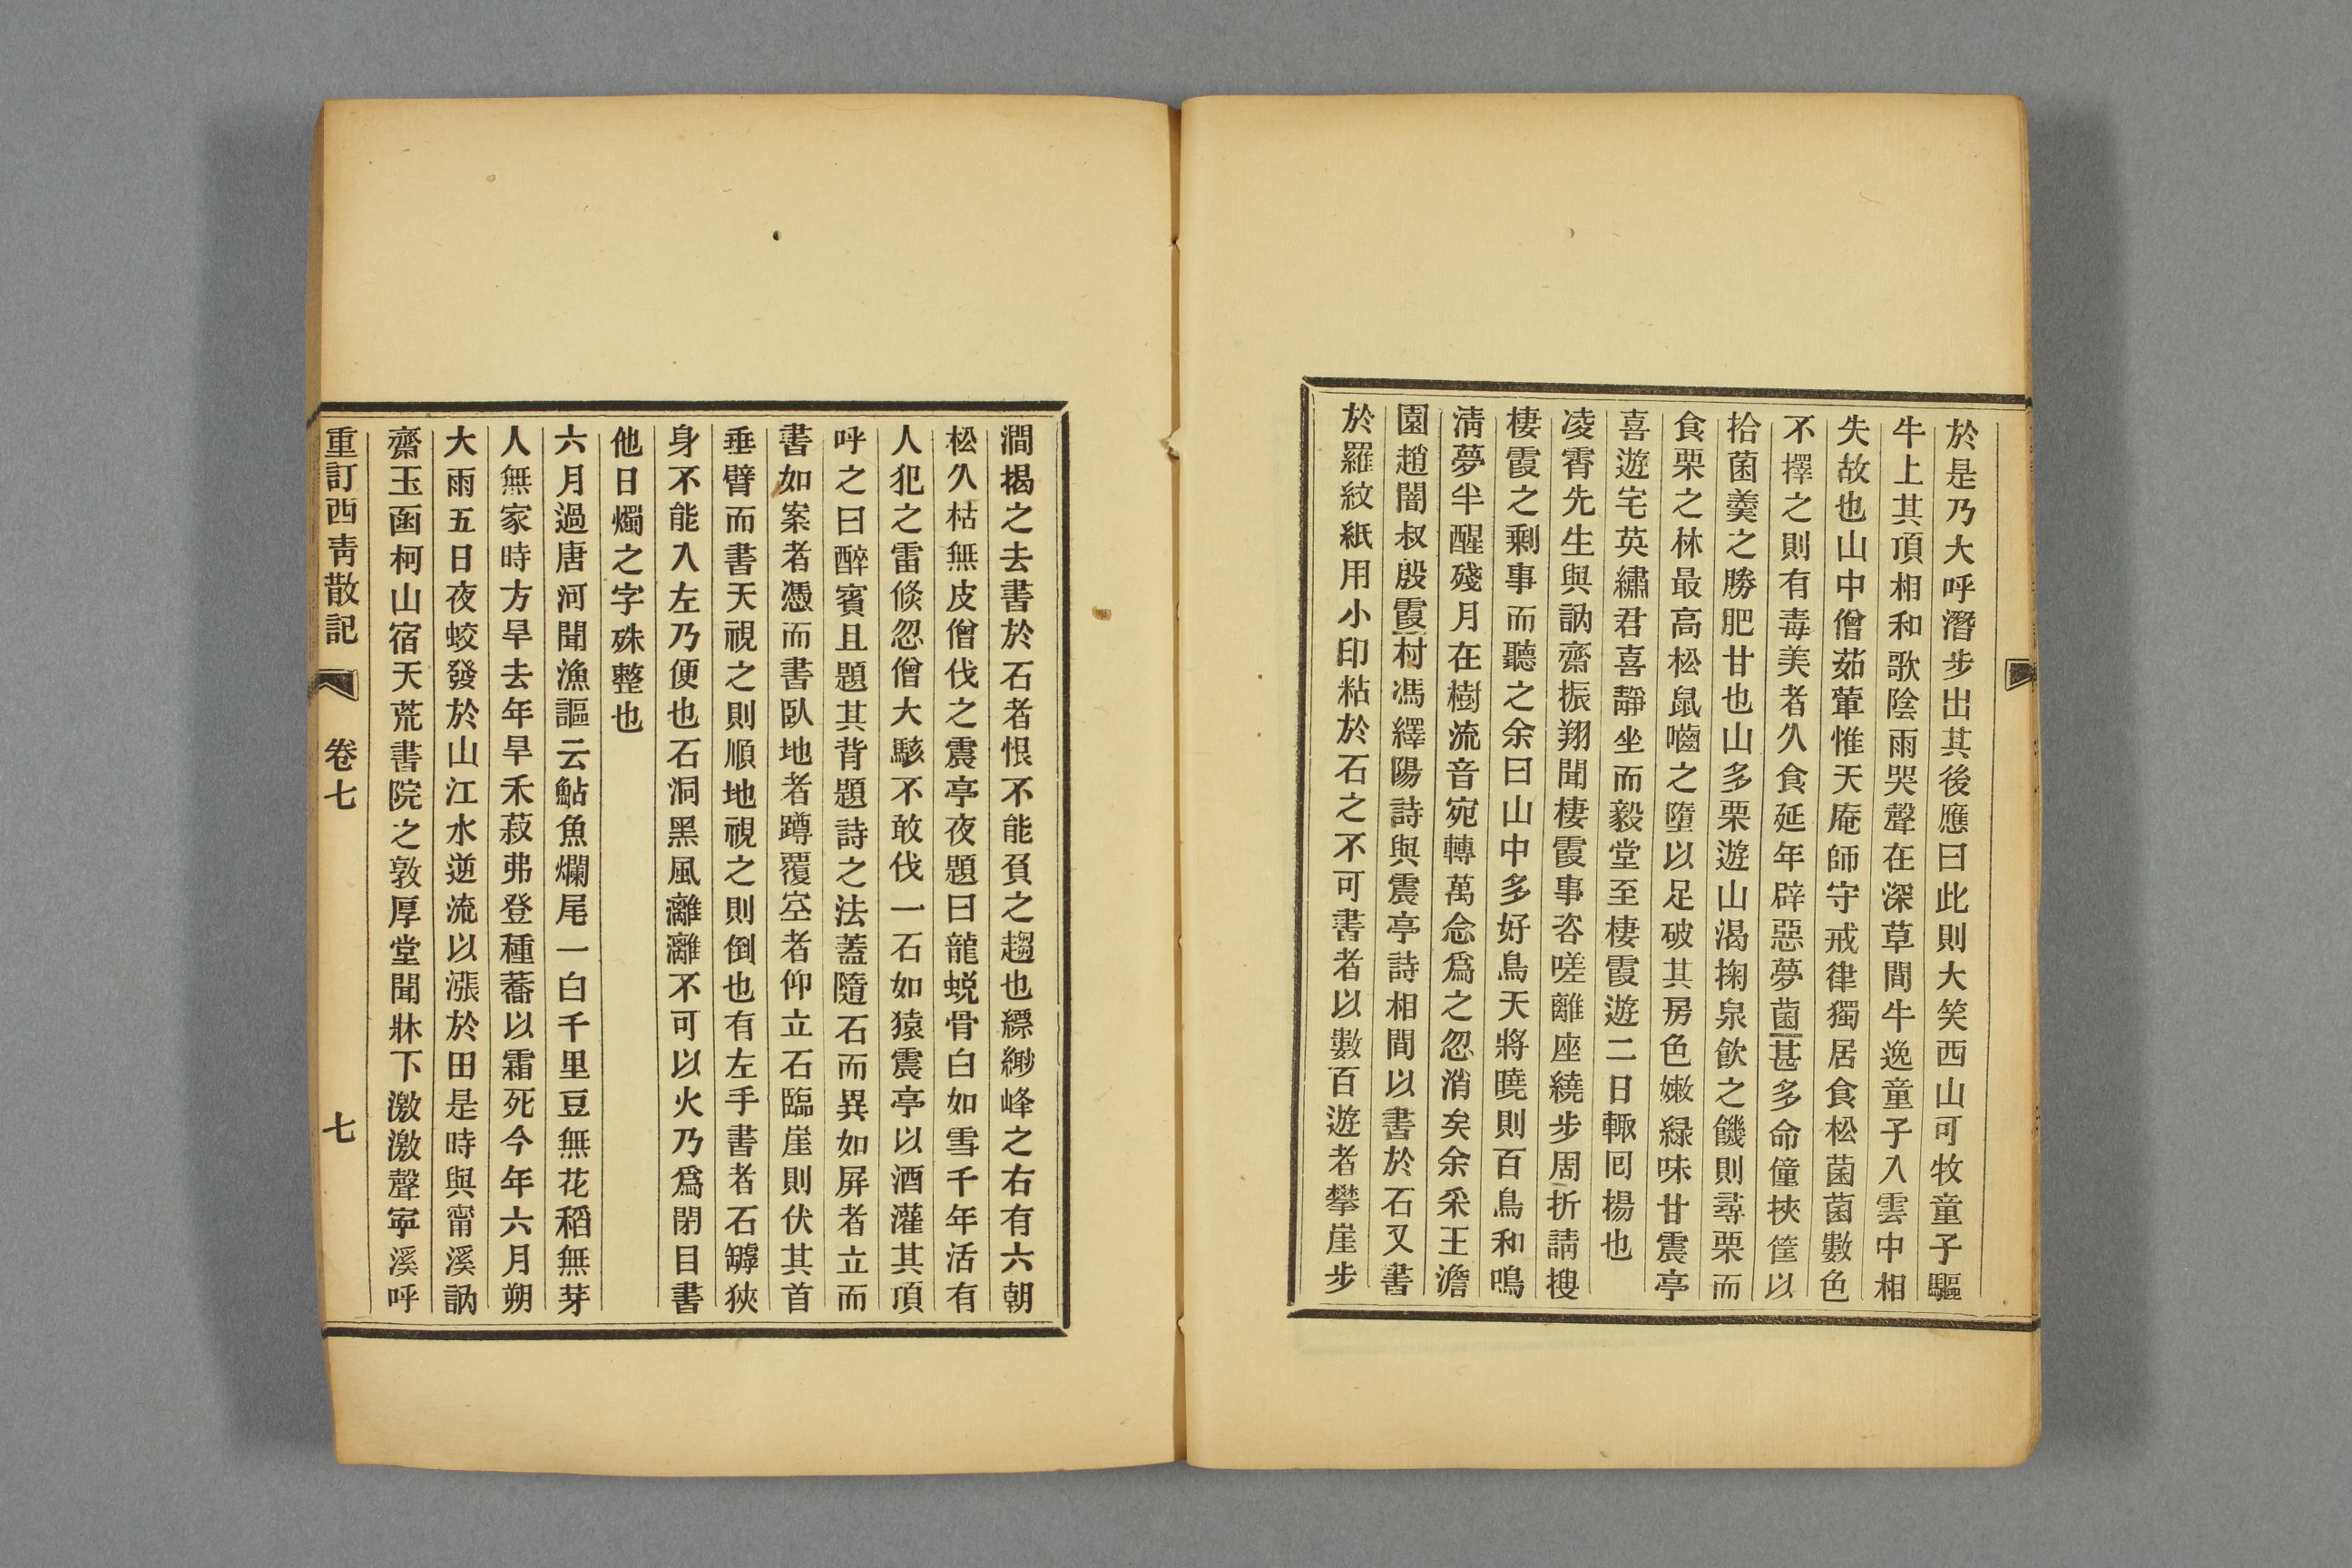 於是乃大呼潛步出其後應曰此則大笑西山可牧童子驅
牛上其頂相和歌陰雨哭聲在深草間牛逸童子入雲中相
失故也山中僧茹葷惟天庵師守戒律獨居食松菌菌數色
不擇之則有毒美者久食延年辟惡夢菌甚多命僮挾筐以
拾菌羹之勝肥甘也山多栗遊山渴掬泉飲之饑則尋栗而
食栗之林最高松鼠嚙之墮以足破其房色嫩緑味甘震亭
喜遊宅英繡君喜靜坐而毅堂至棲霞遊二日輙囘揚也
凌霄先生與訥齋振翔聞棲霞事咨嗟離座繞步周折請搜
棲霞之剩事而聽之余曰山中多好鳥天將曉則百鳥和鳴
淸夢半醒殘月在樹流音宛轉萬念爲之忽消矣余采王澹
園趙闇叔殷霞村馮繹陽詩與震亭詩相間以書於石又書
於羅紋紙用小印粘於石之不可書者以數百遊者攀崖步
澗揭之去書於石者恨不能負之趨也縹緲峰之右有六朝
松久枯無皮僧伐之震亭夜題曰龍蛻骨白如雪千年活有
人犯之雷倐忽僧大駭不敢伐一石如猿震亭以酒灌其頂
呼之曰醉賓且題其背題詩之法蓋隨石而異如屏者立而
書如案者憑而書臥地者蹲覆空者仰立石臨崖則伏其首
垂臂而書天視之則順地視之則倒也有左手書者石罅狹
身不能入左乃便也石洞黑風離離不可以火乃爲閉目書
他日燭之字殊整也
六月過唐河聞漁謳云鮎魚爛尾一白千里豆無花稻無芽
人無家時方旱去年旱禾菽弗登種蕎以霜死今年六月朔
大雨五日夜蛟發於山江水逆流以漲於田是時與甯溪訥
齋玉函柯山宿天荒書院之敦厚堂聞牀下激激聲寜溪呼
重訂西靑散記 卷七 七